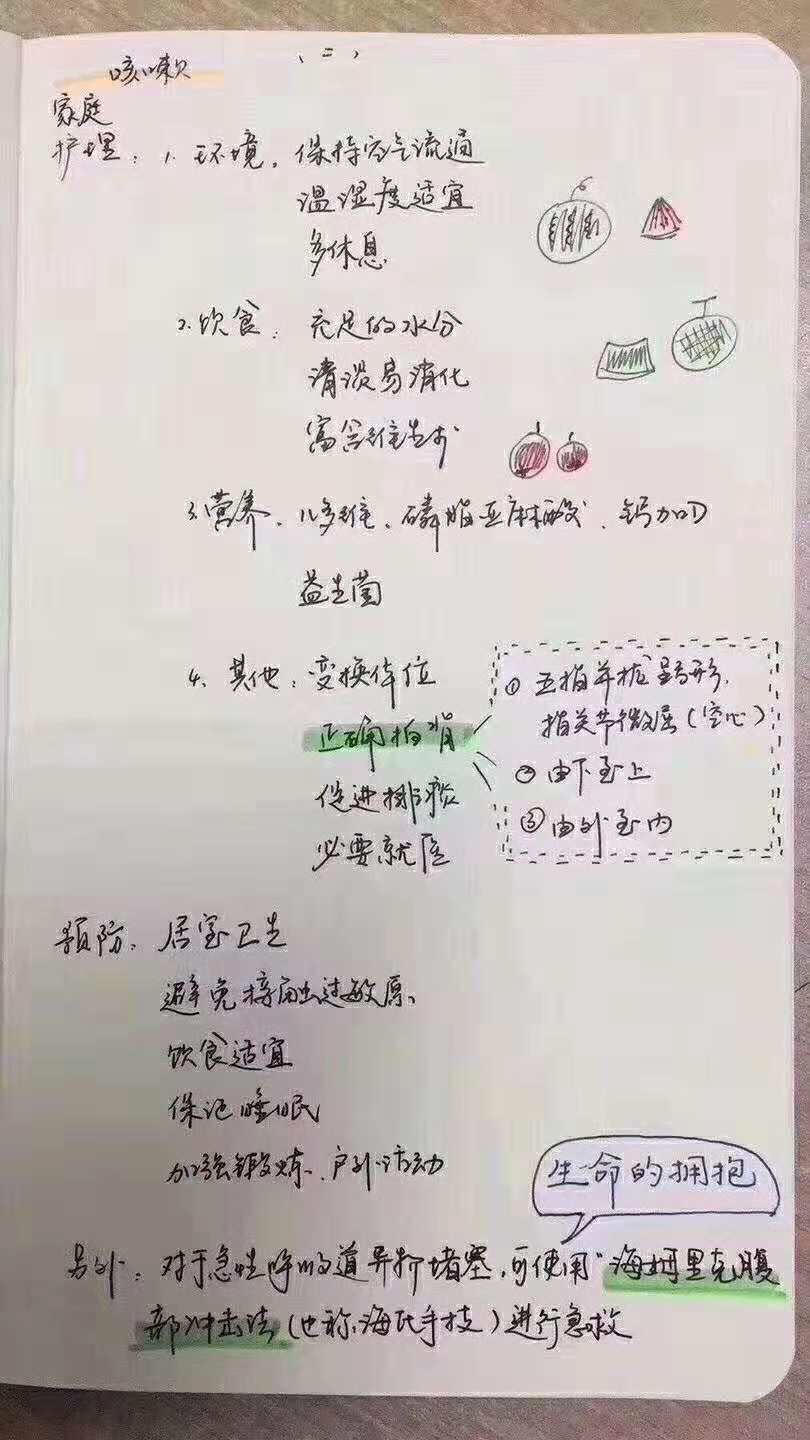 咳嗽 (二)
家庭
护理：1. 环境，保持空气流通
温湿度适宜
多休息
2. 饮食：充足的水分
清淡易消化
富含维生素
3. 营养、儿多维、磷脂亚麻酸、钙加D
益生菌
4、其他：变换体位
正确拍背
促进排痰
必要就医
① 五指并拢呈弓形，
指关节微屈（空心）
② 由下至上
③ 由外至内
预防：居室卫生
避免接触过敏原、
饮食适宜
保证睡眠
加强锻炼、户外活动
生命的拥抱
另外：对于急性呼吸道异物堵塞，可使用“海姆里克腹
部冲击法（也称海氏手技）进行急救